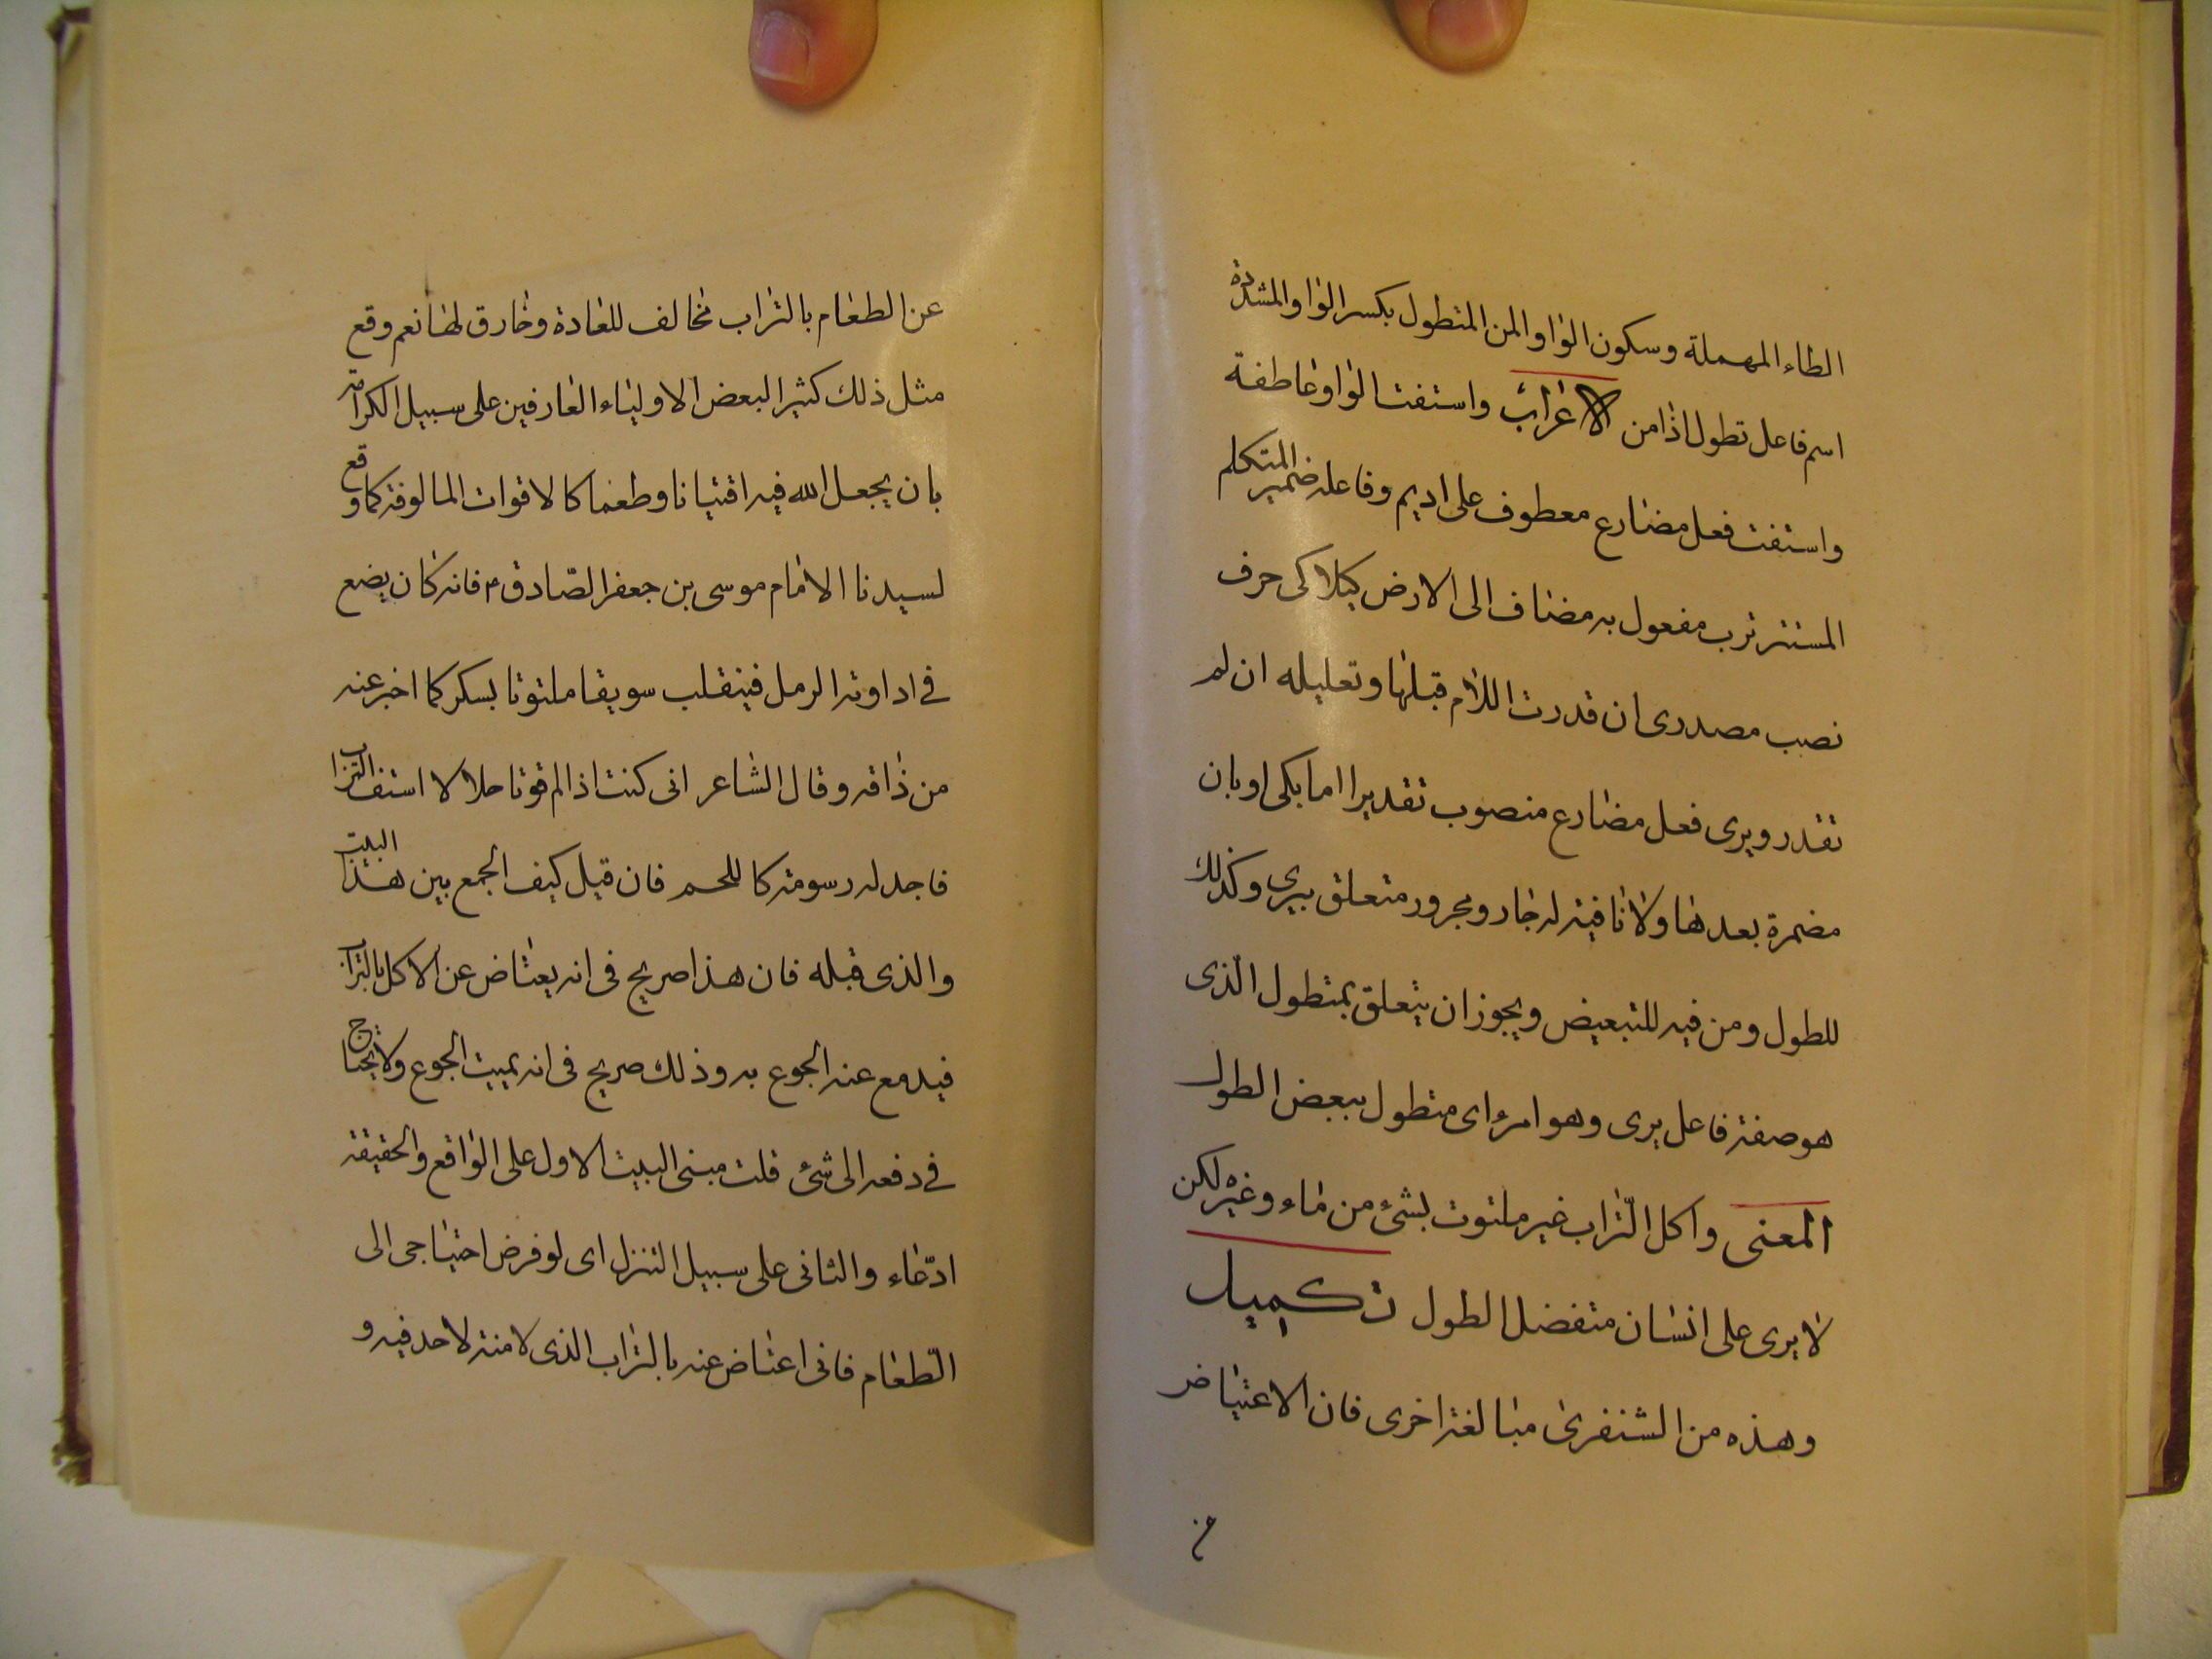 الطاء المهملة وسكون الواو المن المتطول بكسر الواو المشددة
اسم فاعل تطول اذا من الاعراب واستفت الواو عاطفة
واستفت فعل مضارع معطوف على اديم وفاعله ضمير المتكلم
المستتر ترب مفعول به مضاف الى الارض كيلا كى حرف
نصب مصدرى ان قدرت اللام قبلها وتعليله ان لم
تقدر ويرى فعل مضارع منصوب تقديرا اما بكى او بان
مضمرة بعدها ولا نافية له جار ومجرور متعلق بيرى وكذلك
للطول ومن فيه للتبعيض ويجوز ان يتعلق بمتطول الذى
هو صفة فاعل يرى وهو امرؤ اى متطول ببعض الطول
المعنى واكل التراب غير ملتوت بشئ من ماء وغيره لكن
لا يرى على انسان متفضل الطول تكميل
وهذه من الشنفرى مبالغة اخرى فان الاعتياض
عن
عن الطعام بالتراب مخالف للعادة وخارق لها نعم وقع
مثل ذلك كثيرا لبعض الاولياء العارفين على سبيل الكرامة
بان يجعل الله فيه اقتياتا وطعما كالاقوات المالوفة كما وقع
لسيدنا الامام موسى بن جعفر الصادق ع فانه كان يضع
فى اداوته الرمل فينقلب سويقا ملتوتا بسكر كما اخبر عنه
من ذاقه وقال الشاعر انى كنت اذا لم قوتا حلالا استف التراب
فاجد له رسومة كاللحم فان قيل كيف الجمع بين هذا البيت
والذى قبله فان هذا صريح فى انه يعتاض عن الاكل بالتراب
فيدمع عنه الجوع به وذلك صريح فى انه يميت الجوع ولا يحتاج
فى دفعه الى شئ قلت مبنى البيت الاول على الواقع والحقيقة
ادعاء والثانى على سبيل التنزل اى لو فرض احتياجى الى
الطعام فانى اعتاض عنه بالتراب الذى لا منة لاحد فيه و